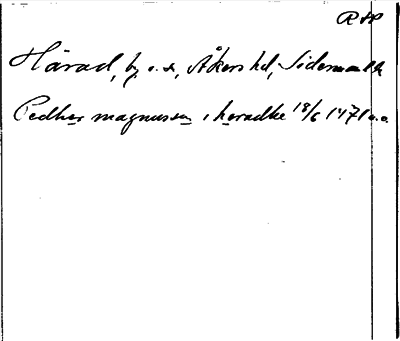 RAP
Härad, by o. s., Åkers hd, Södermanl
Pedher magnusson i haradhe 18/6 1471 o.a.